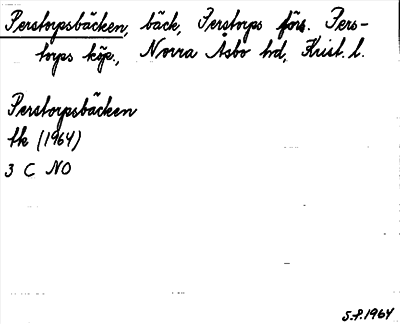 Perstorpsbäcken, bäck, Perstorps förs. Pers-
torps köp., Norra Åsbo hd, Krist. l.
Perstorpsbäcken
tk (1964)
3 C NO
S.P. 1964